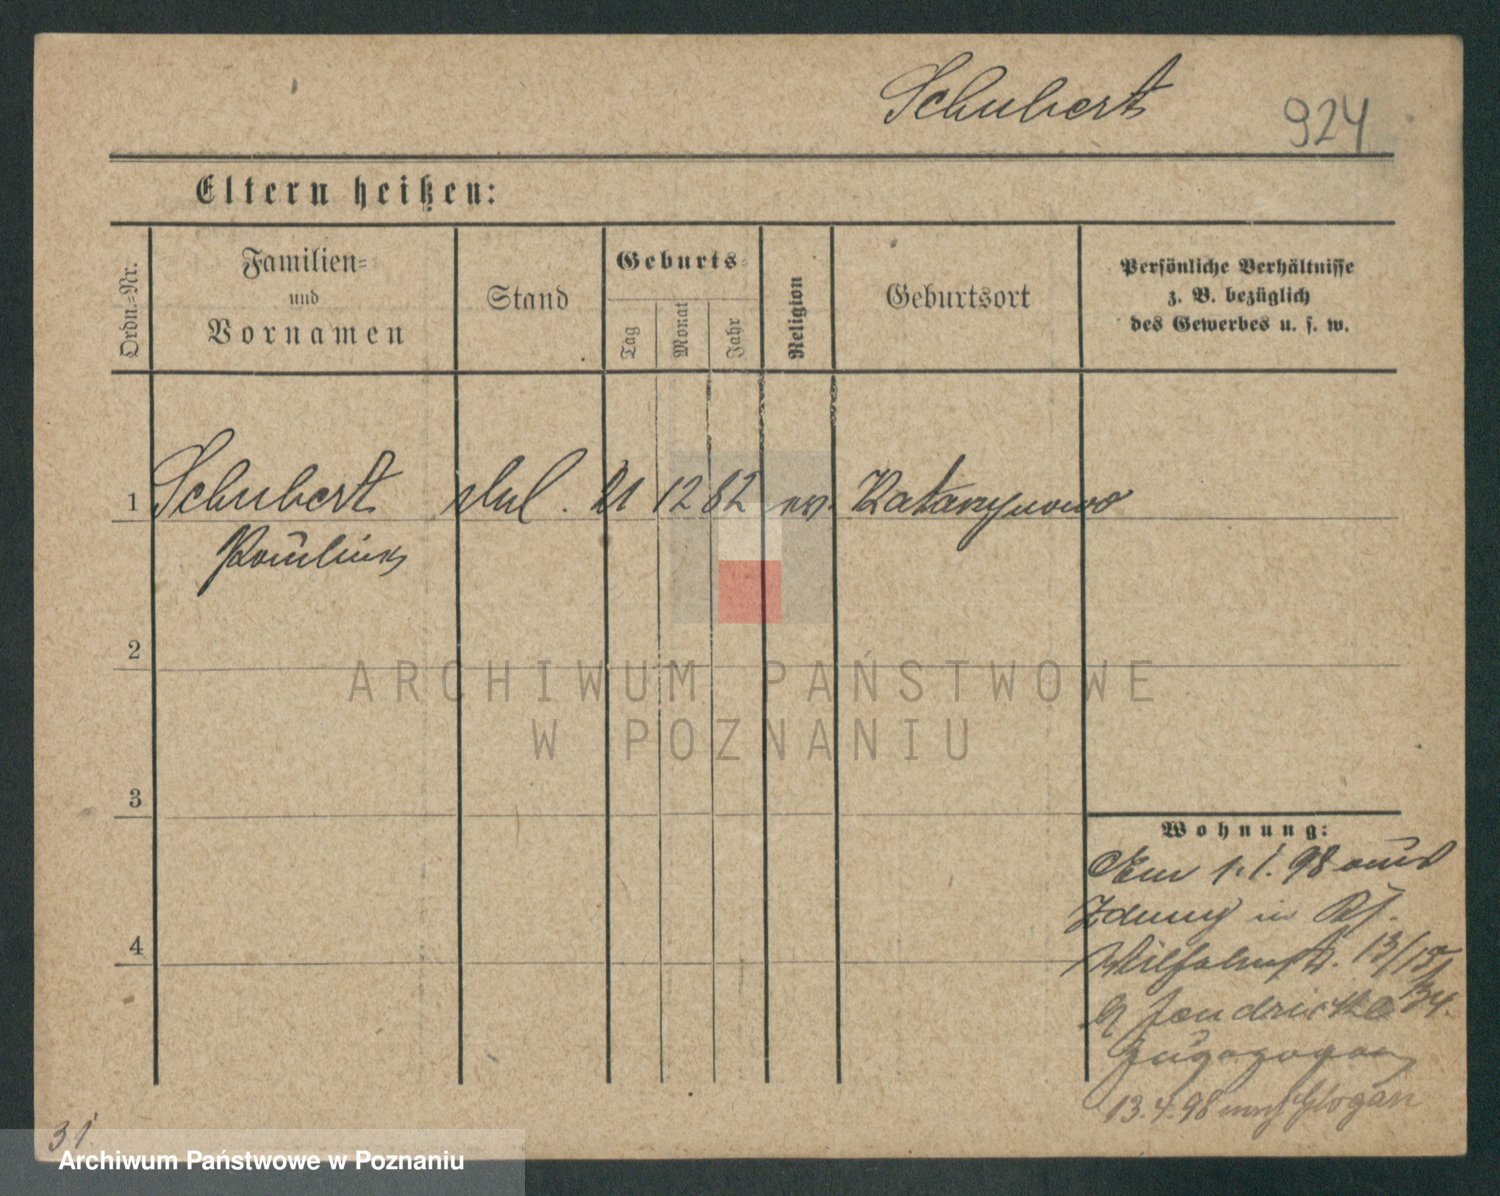 Schubert 924
Eltern heißen:
Ordn.=Nr.
Familien=
und
Vornamen
Stand
Geburts=
Tag
Monat
Jahr
Religion
Geburtsort
Persönliche Verhältnisse
z. B. bezüglich
des Gewerbes u. s. w.
1 Schubert 21 12 82 ev. Katarzynowo
Paulina
2
ARCHIWUM PAŃSTWOWE
W POZNANIU
3
Wohnung:
Am 1.1.98 aus
Zduny in
4
Wilhelmst. 13/15
b/ Jendricke 34.
zugezogen
13.4.98 nach Glogau
31
Archiwum Państwowe w Poznaniu